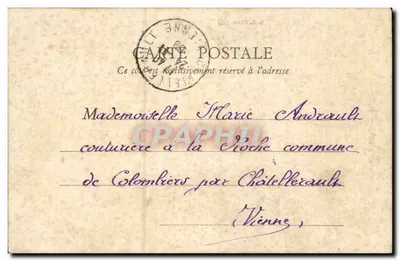 CARTE POSTALE
Ce côté est exclusivement réservé à l'adresse
Mademoiselle Marie Andrault
couturière a la Roche commune
de Colombiers par Châtellerault
Vienne,